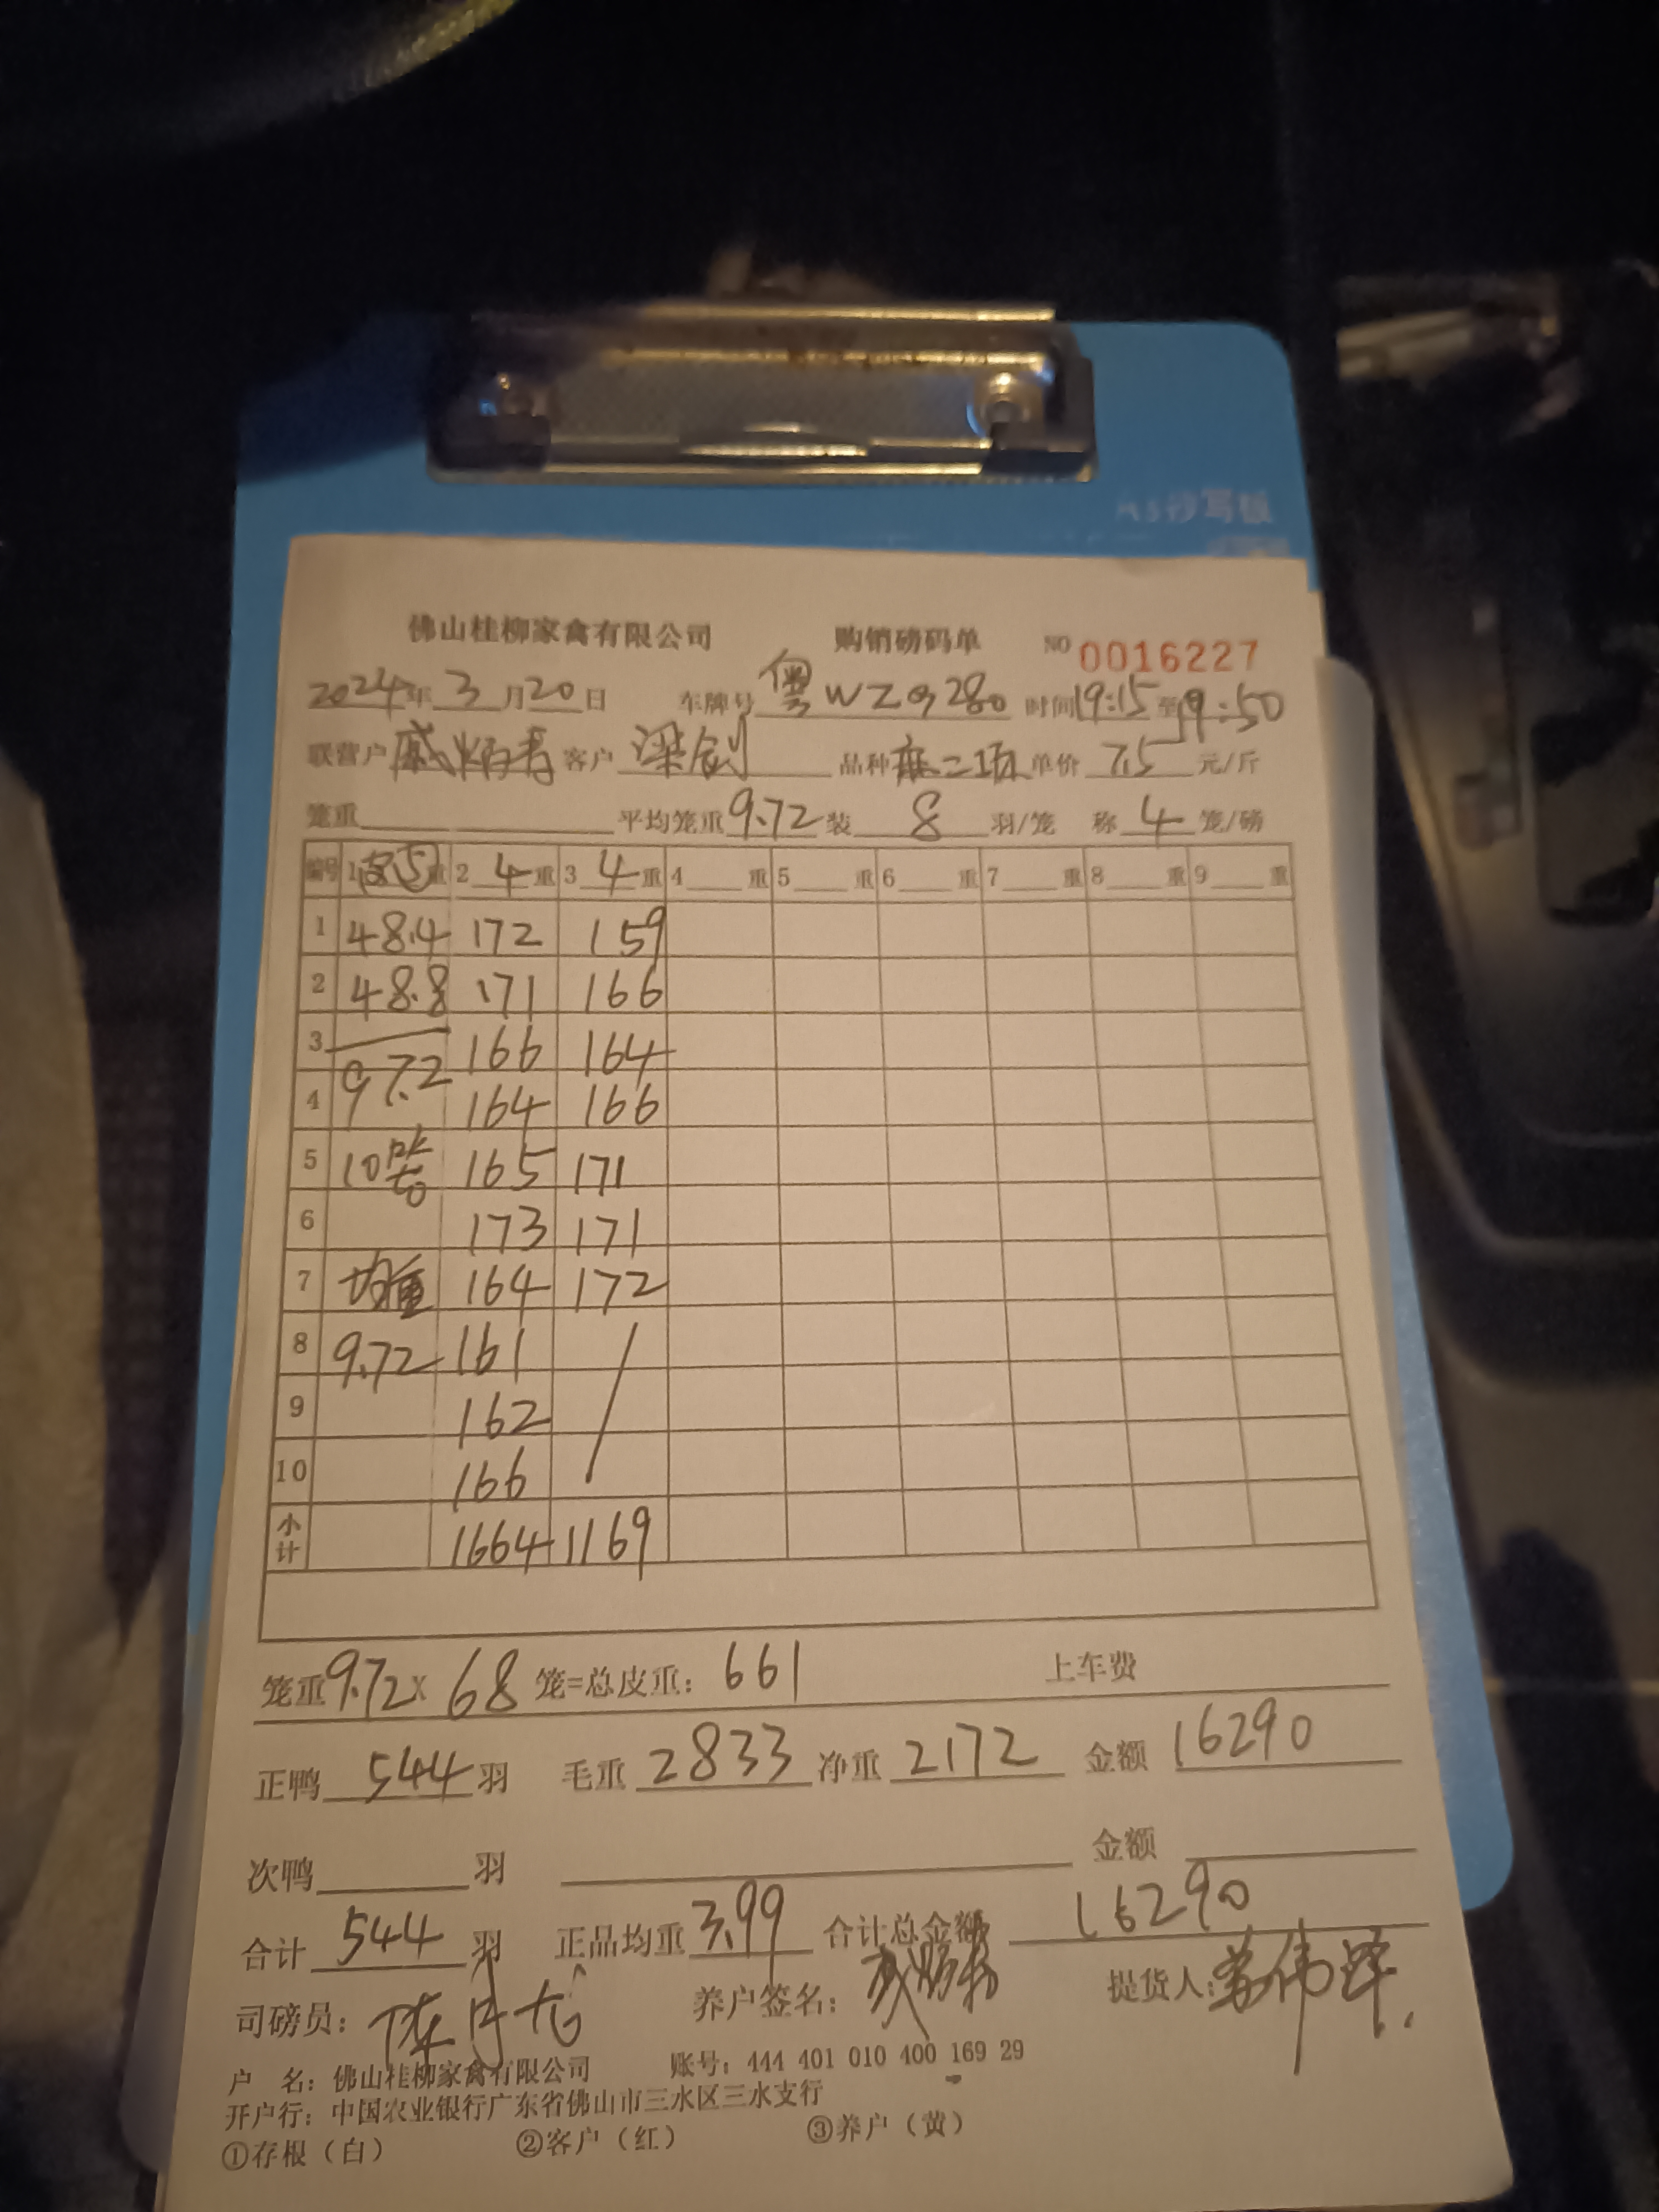 沙写板
佛山桂柳家禽有限公司 购销磅码单 NO 0016227
2024年 3月20日 车牌号 粤WZQ280 时间19:15至19:50
联营户 戚炳青 客户 梁创 品种 麻二项 单价 7.5 元/斤
笼重 平均笼重 9.72 装 8 羽/笼 称 4 笼/磅
编号 1 5 重 2 4 重 3 4 重 4 重 5 重 6 重 7 重 8 重 9 重
1 48.4 172 159
2 48.8 171 166
3 166 164
4 97.2 164 166
5 10笼 165 171
6 173 171
7 均重 164 172
8 9.72 161
9 162
10 166
小计 1664 1169
笼重 9.72 x 68 笼=总皮重: 661 上车费
正鸭 544 羽 毛重 2833 净重 2172 金额 16290
次鸭 羽 金额
合计 544 羽 正品均重 3.99 合计总金额 16290
司磅员: 养户签名: 提货人:
户 名: 佛山桂柳家禽有限公司 账号: 444 401 010 400 169 29
开户行: 中国农业银行广东省佛山市三水区三水支行
①存根（白） ②客户（红） ③养户（黄）